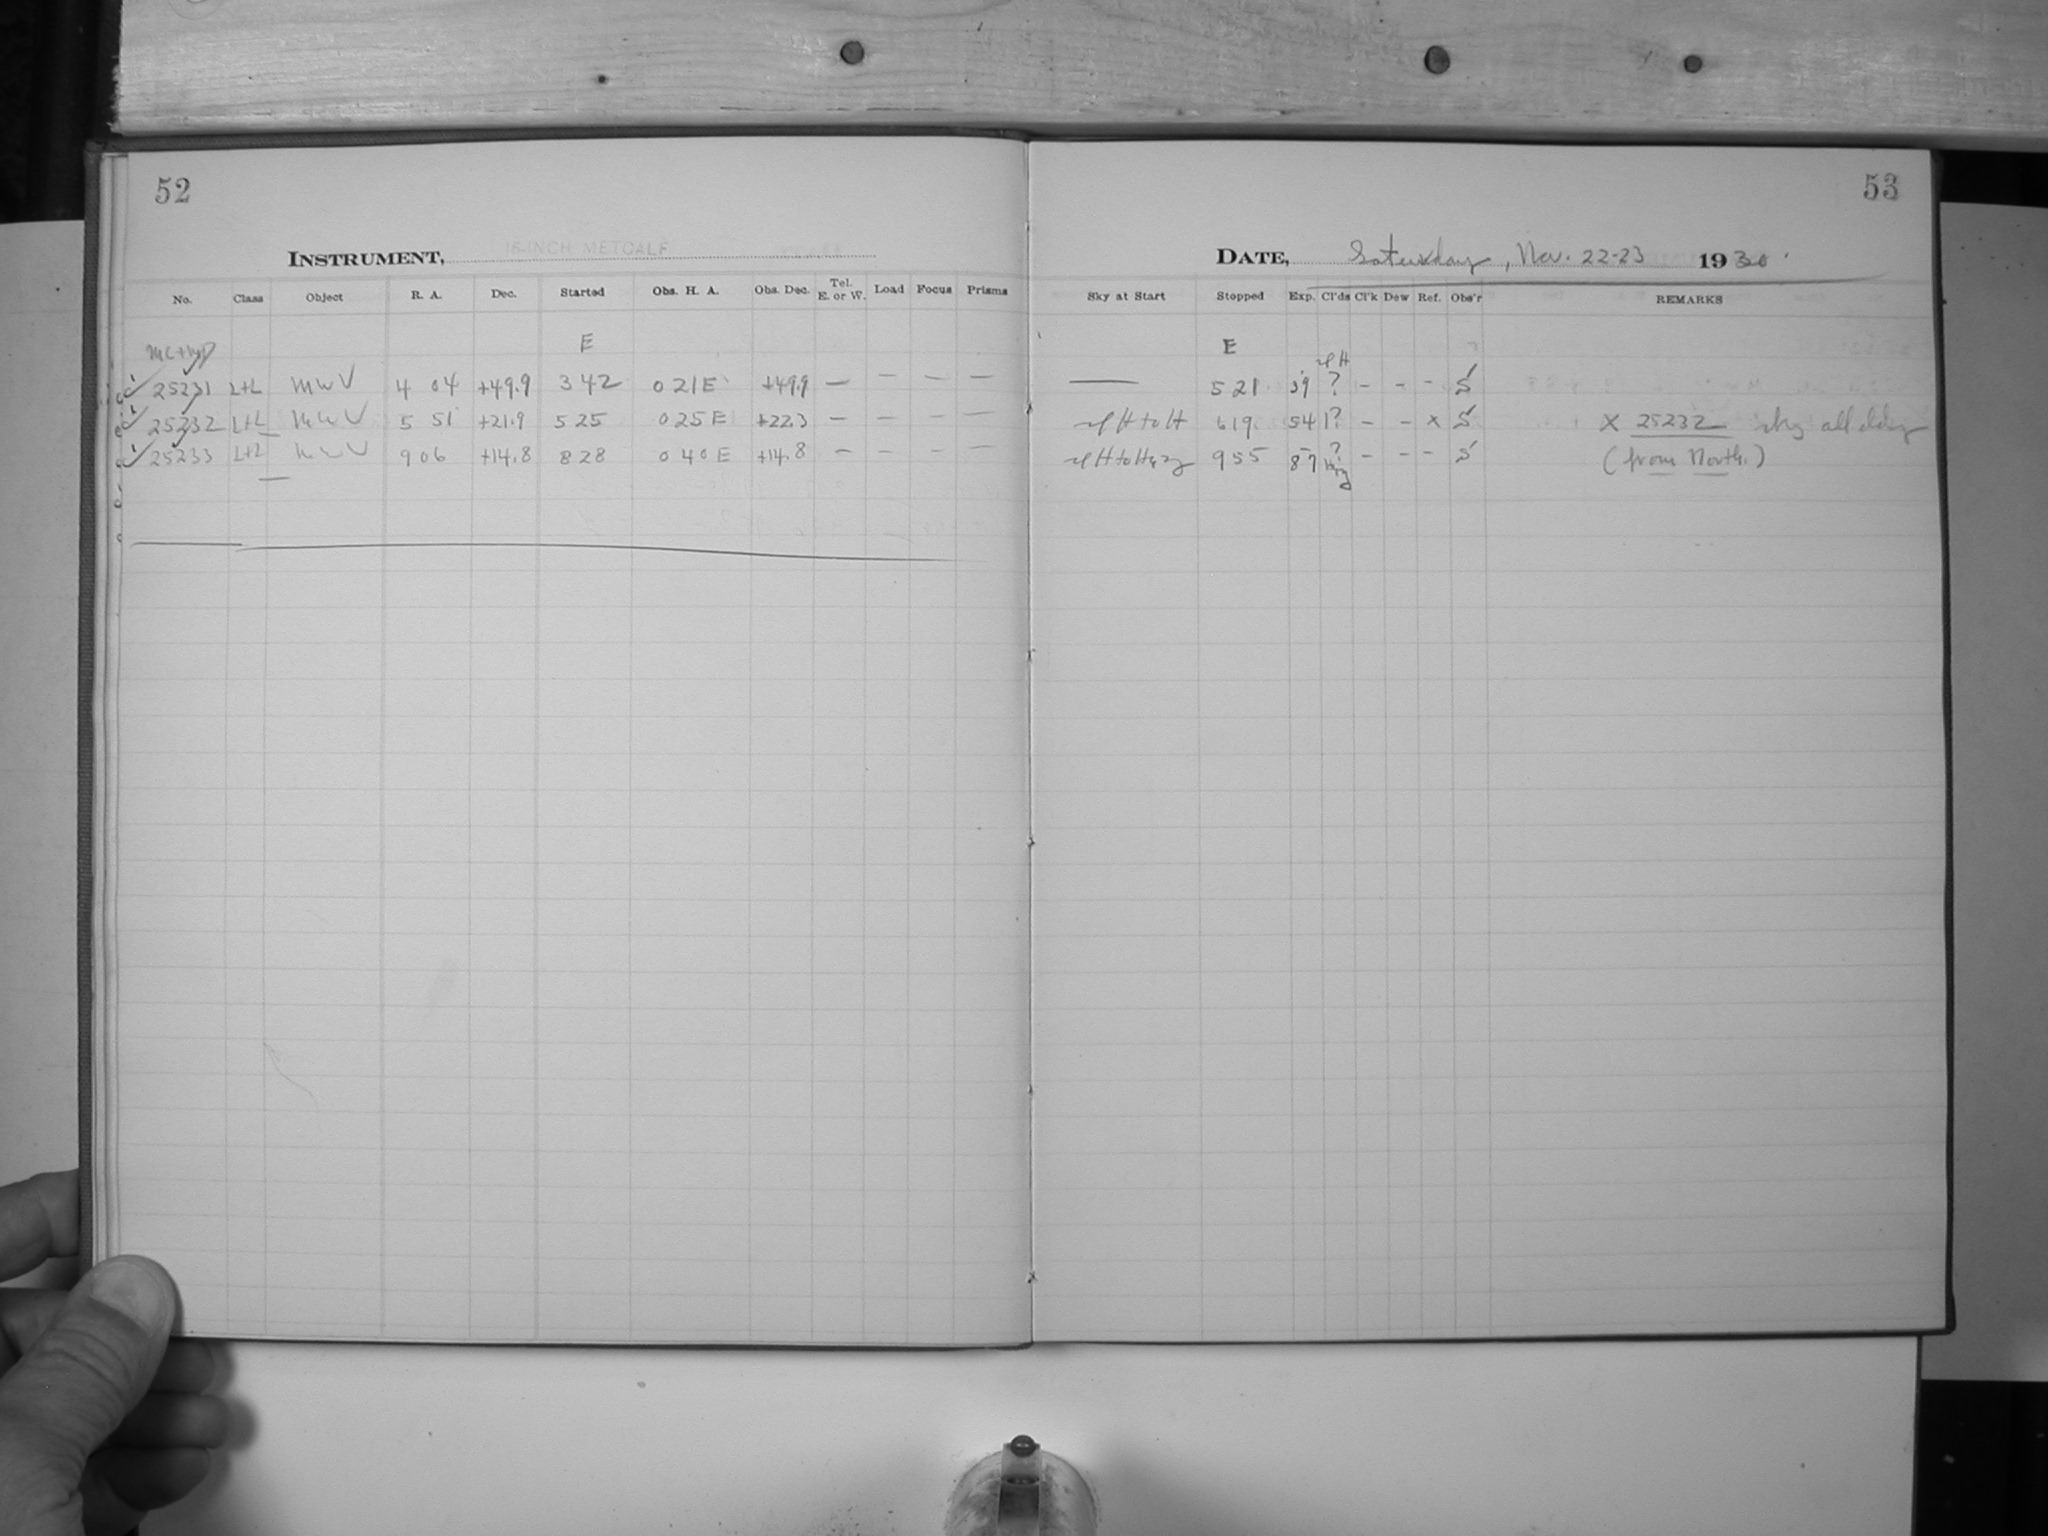 52
INSTRUMENT, 16-INCH METCALF
No. Class Object R. A. Dec. Started Obs. H. A. Obs. Dec. Tel. E. or W. Load Focus Prisms
E
25231 L+L MWV 4 04 +49.9 3 42 0 21 E +49.9 — — — —
25232 L+L MWV 5 51 +21.9 5 25 0 25 E +22.3 — — — —
25233 L+L MWV 9 06 +14.8 8 28 0 40 E +14.8 — — — —
53
DATE, Saturday, Nov. 22-23 1930
Sky at Start Stopped Exp. Cl'ds Cl'k Dew Ref. Obs'r REMARKS
E
— 5 21 ? - - - S
H to H 6 19 54 1? - - x S X 25232 sky all
H to Hazy 9 55 87 ? Hazy - - - S (from North.)